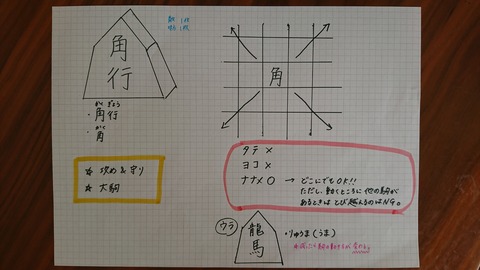 角行
敵 1枚
味方 1枚
かく ぎょう
・角行
かく
・角
☆ 攻め & 守り
☆ 大駒
角
タテ ×
ヨコ ×
ナナメ ○ → どこにでもOK!!
ただし、動くところに他の駒が
あるときはとび越えるのはNG。
ウラ
龍馬
・りゅうま(うま)